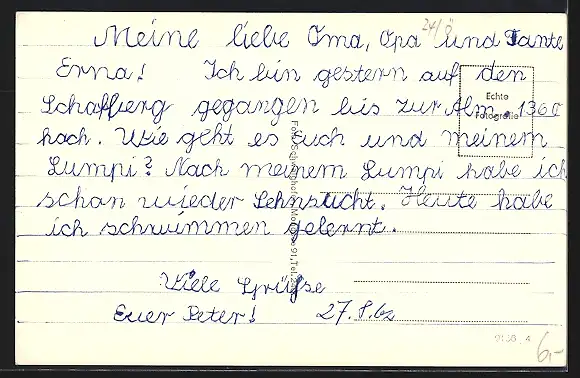 24/8
Meine liebe Oma, Opa und Tante
Erna! Ich bin gestern auf den
Schafberg gegangen bis zur Alm, 1360
hoch. Wie geht es Euch und meinem
Lumpi? Nach meinem Lumpi habe ich
schon wieder Sehnsucht. Heute habe
ich schwimmen gelernt.
Viele Grüße
Euer Peter! 27.8.62
Echte
Fotografie
9136 4
6,-